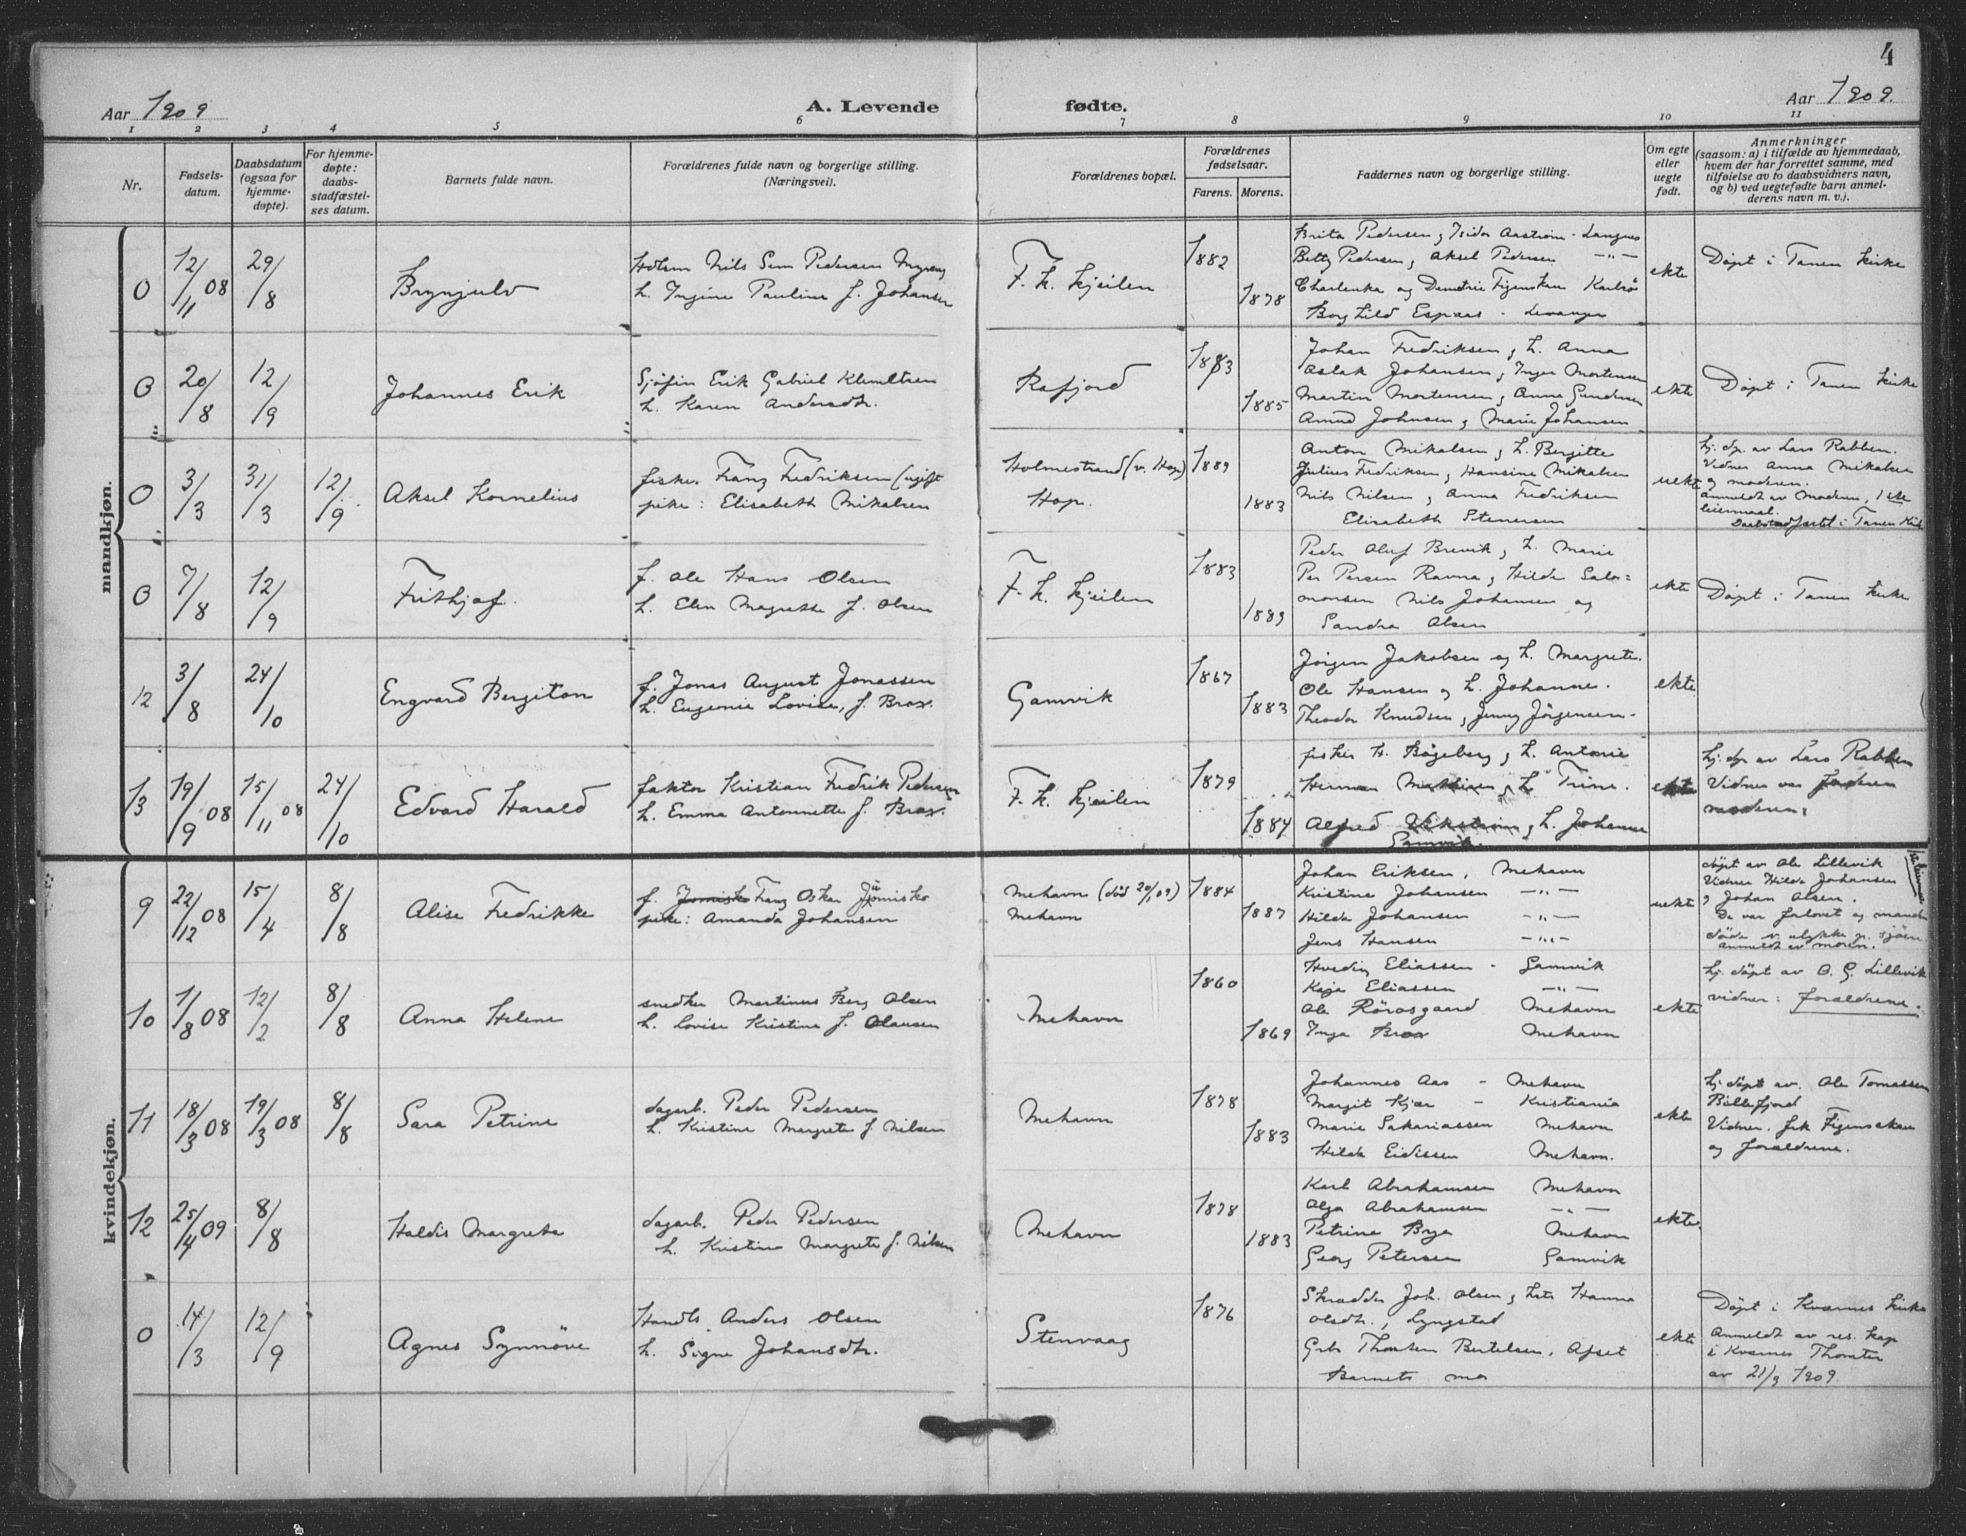 4
Aar 1909
A. Levende
fødte.
Aar 1909.
1 2 3 4 5 6 7 8 9 10 11
Nr.
Fødsels-
datum.
Daabsdatum
(ogsaa for
hjemme-
døpte).
For hjemme-
døpte:
daabs-
stadfæstel-
ses datum.
Barnets fulde navn.
Forældrenes fulde navn og borgerlige stilling.
(Næringsvei).
Forældrenes bopæl.
Forældrenes
fødselsaar.
Farens. Morens.
Faddernes navn og borgerlige stilling.
Om egte
eller
uegte
født.
Anmerkninger
(saasom: a) i tilfælde av hjemmedaab,
hvem der har forrettet samme, med
tilføielse av to daabsvidners navn,
og b) ved uegtefødte barn anmel-
derens navn m. v.).
mandkjøn.
0 12/11 08 29/8
Brynjulv
Nils Sem Pedersen
h. Ingine Pauline f. Johansen
F. h. Kjeilen
1882
1878
Brita Pedersen, Isidor Aastrøm - Langnes
Betty Pedersen, Aksel Pedersen -"-
og Demetrie Figenskau Karlsø
Borghild Espaas - Levanger
ekte
Døpt i Tanen kirke
0 20/8 12/9
Johannes Erik
Erik Gabriel Klemetsen
h. Karen Andersdtr.
Rafjord
1883
1885
Johan Fredriksen, h. Anna
Aslak Johansen, Inger Mortensen
Martin Mortensen, Anna Gundersen
Amud Johnsen, Marie Johansen
ekte
Døpt i Tanen kirke
0 3/3 31/3 12/9
Aksel Kornelius
fisker Franz Fredriksen (ugift
pike: Elisabeth Mikalsen
Holmestrand (v. Hop)
Hop.
1889
1883
Anton Mikalsen, h. Bergitte
Julius Fredriksen, Hansine Mikalsen
Nils Nilsen, Anna Fredriksen
Elisabeth Stenersen
uekte
hj. dp. av Lars Rabben.
Vidner Anna Mikalsen
og moderen.
anmeldt av Moderen, 1ste
leiermaal.
i Tanen Kirke
0 7/8 12/9
Frithjof.
f. Ole Hans Olsen
h. Elen Magrethe f. Olsen
F. h. Kjeilen
1883
1889
Peder Oluf Brevik, h. Marie
Per Persen Ravna, Hilda Salo=
monsen Nils Johansen og
Sandra Olsen
ekte
Døpt i Tanen kirke
12 3/8 24/10
Engvard Bergiton
f. Jonas August Jonassen
h. Eugenie Lovise, f. Brox.
Gamvik
1867
1883
Jørgen Jakobsen og h. Margrete.
Ole Hansen og h. Johanne.
Theodor Knudsen, Jenny Jørgensen.
ekte
13 19/9 08 15/11 08 24/10
Edvard Harald
faktor Kristian Fredrik Pedersen
h. Emma Antonette f. Brox.
F. h. Kjeilen
1879
1884
fisker H. Bøgeberg, h. Antonie
Herman Mathisen, h. Trine.
Alfred Vikstrøm, h. Johanne
Gamvik.
ekte
hj. dp. av Lars Rabben
Vidner var Faderen
moderen.
kvindekjøn.
9 22/12 08 15/4 8/8
Alise Fredrikke
f. Franz Oskar
pike: Amanda Johansen
Mehavn (død 20/1 09)
Mehavn
1884
1887
Johan Eriksen, Mehavn
Kristine Johansen -"-
Hilda Johansen -"-
Jens Hansen -"-
uekte
døpt av Ole Lillevik
Vidner Hilda Johansen
og Johan Olsen.
De var forlovet og manden
døde v. ulykke p. sjøen
anmeldt av moren.
10 1/8 08 12/2 8/8
Anna Helene
snedker Martinus Berg Olsen
h. Lovise Kristine f. Olausen
Mehavn
1860
1869
Hveding Eliassen - Gamvik
Kaja Eliassen -"-
Ole Rörosgaard Mehavn
Inga Brox Mehavn
ekte
hj. døpt av O. G. Lillevik
vidner: forældrene.
11 18/3 08 19/3 08 8/8
Sara Petrine
dagarb. Peder Pedersen
h. Kristine Margrete f. Nilsen
Mehavn
1878
1883
Johannes Aas - Mehavn
Margit Kjær - Kristiania
Marie Sakariassen Mehavn
Hilda Eidissen Mehavn.
ekte
hj. døpt av. Ole Tomassen
Billefjord
Vidner. frk Figenskau
og forældrene.
12 25/4 09 8/8
Haldis Margreta
dagarb. Peder Pedersen
h. Kristine Margrete f. Nilsen
Mehavn
1878
1883
Karl Abrahamsen Mehavn
Olga Abrahamsen -"-
Petrine Mehavn
Georg Petersen Gamvik
ekte.
0 14/3 12/9
Agnes Synnöve
Handls. Anders Olsen
h. Signe Johansdtr.
Stenvaag
1876
Skrædder Joh. Olsen, Hanna
Olsdtr., Lyngstad
Thorsten Bertelsen,
Barnets mor
ekte
Døpt i Kværnes kirke
Anmeldt av res. kap
i Kværnes
av 21/9 1909.